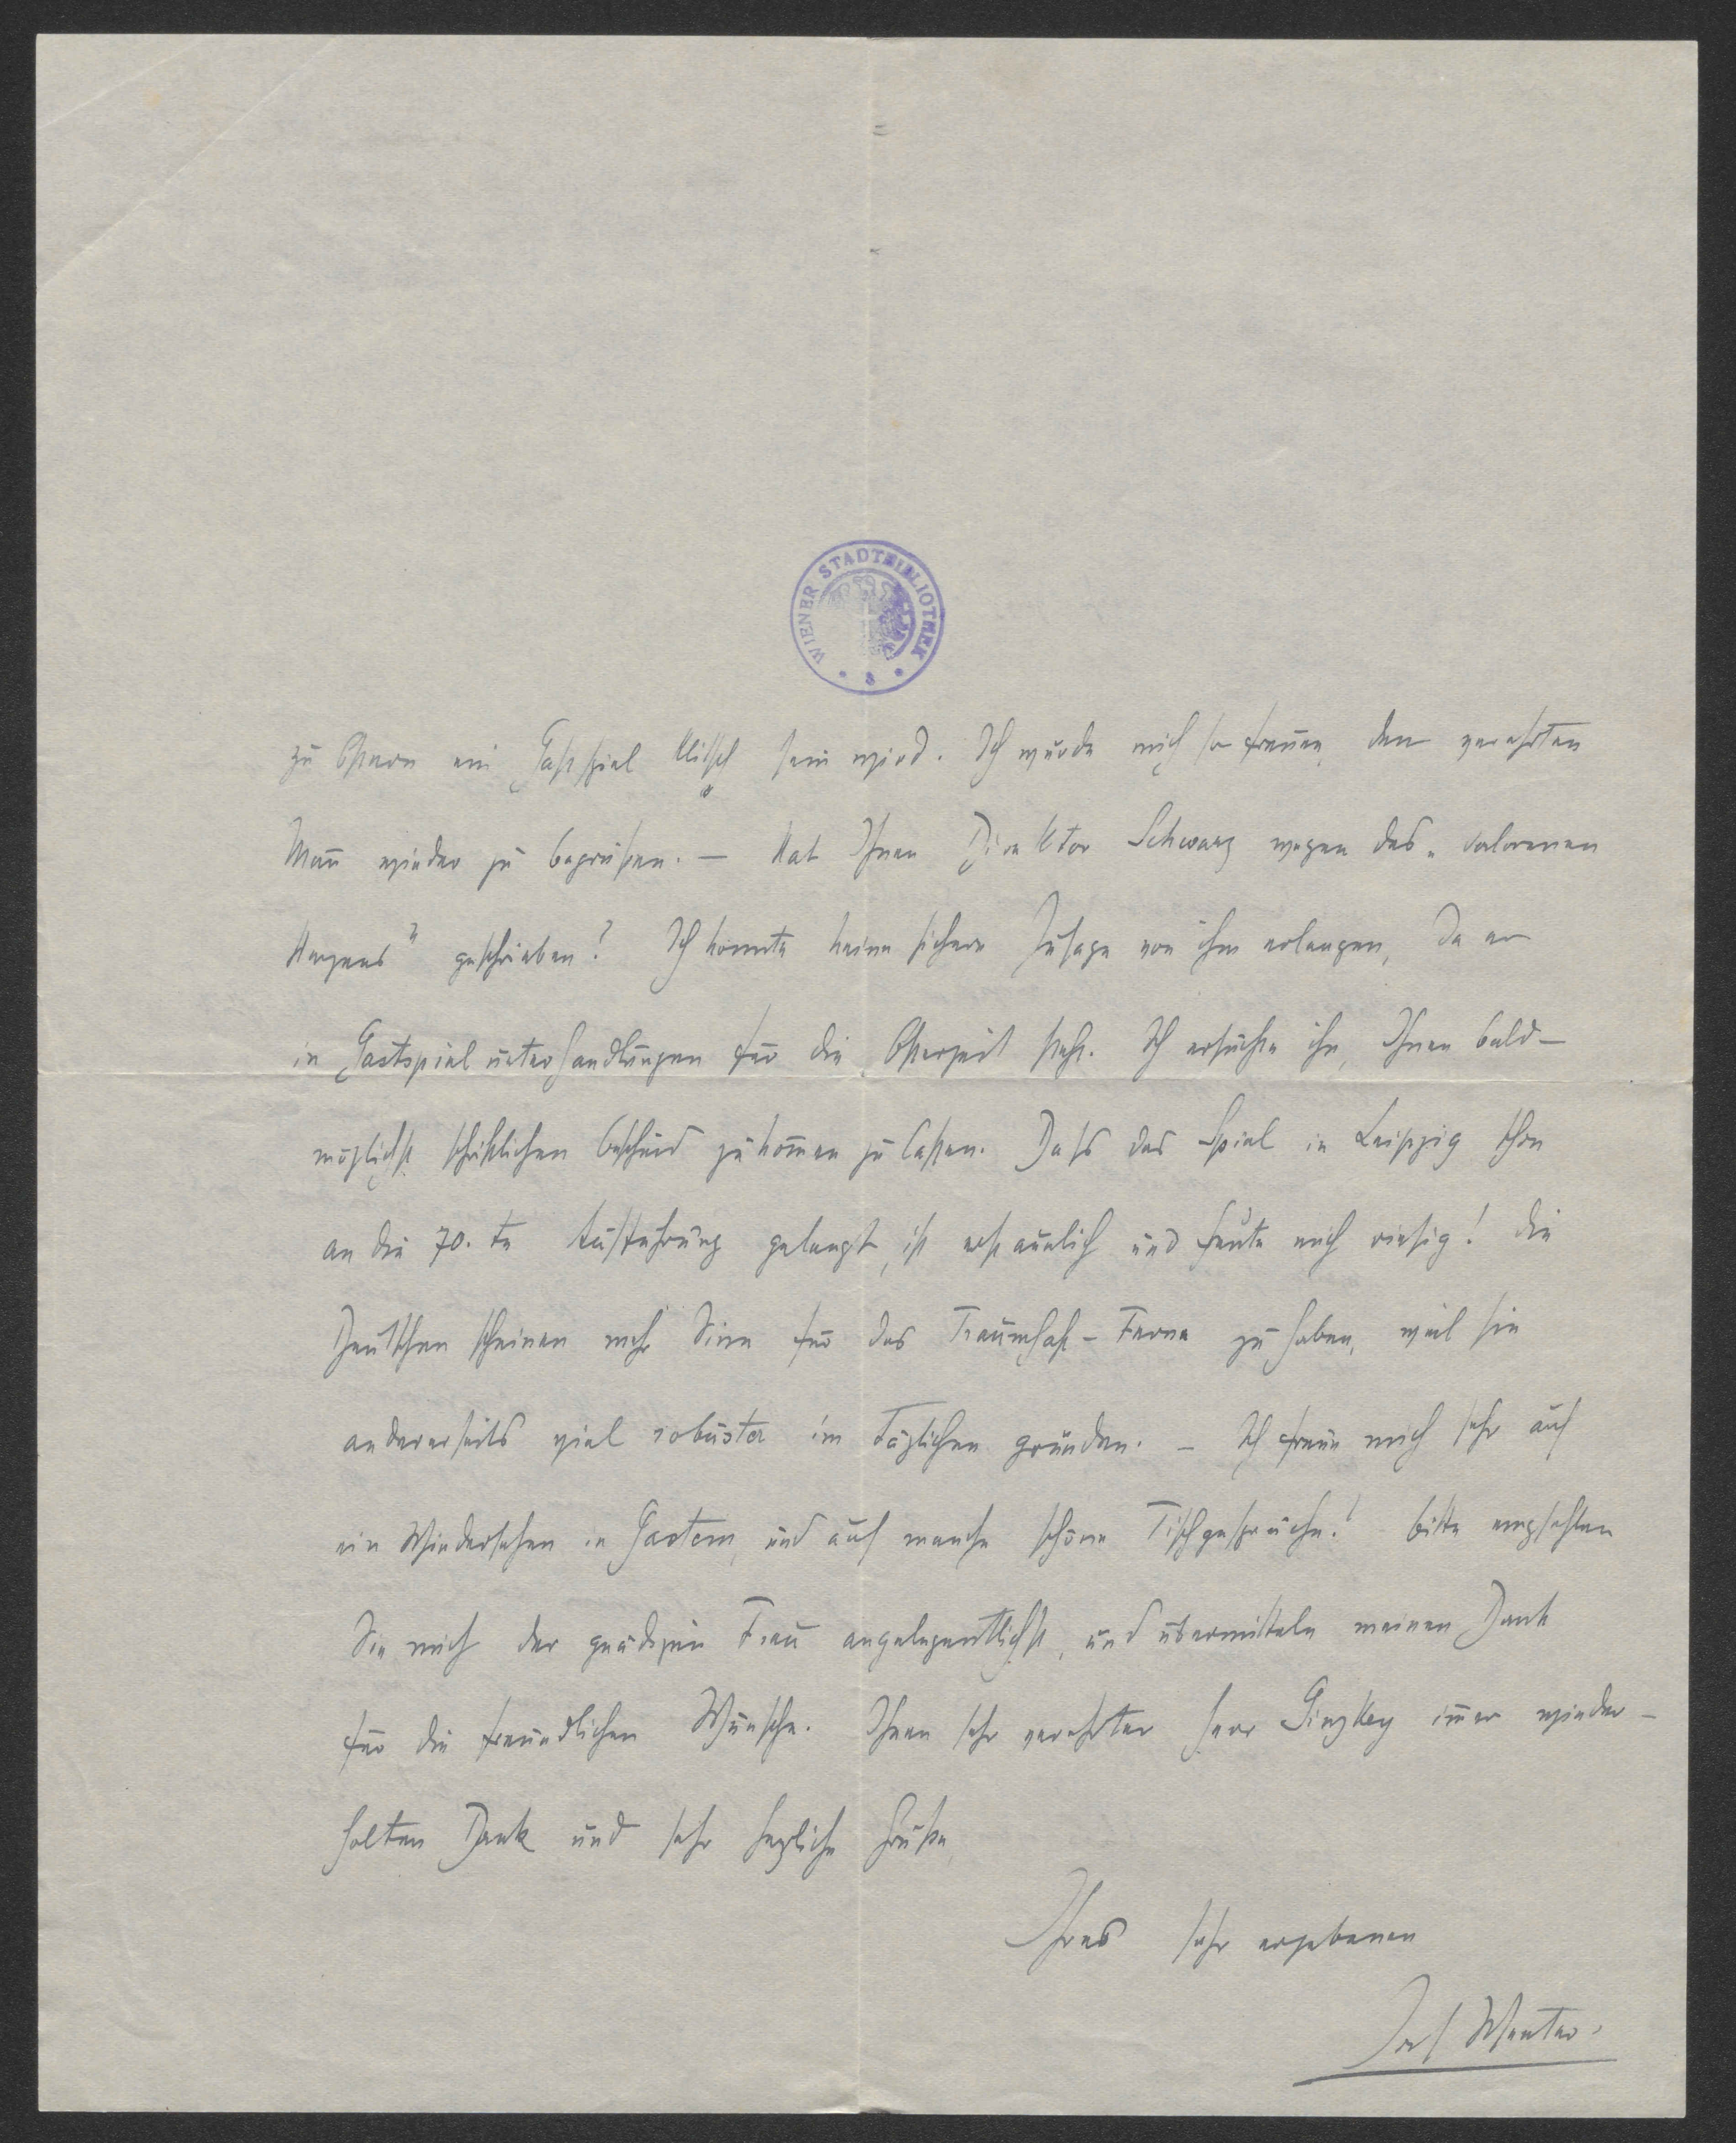 WIENER STADTBIBLIOTHEK
zu Ostern ein Gastspiel Klitsch sein wird. Ich würde mich so freuen, den verehrten
Mann wieder zu begrüßen. — Hat Ihnen Direktor Schwarz wegen des „verlorenen
Herzens" geschrieben? Ich konnte keine sichere Zusage von ihm erlangen, da er
in Gastspielunterhandlungen für die Osterzeit steht. Ich ersuchte ihn, Ihnen bald-
möglichst schriftlichen Bescheid zukommen zu lassen. Dass das Spiel in Leipzig schon
an die 70. te Aufführung gelangt, ist erstaunlich und freute mich riesig! Die
Deutschen scheinen mehr Sinn für das Traumhaft-Ferne zu haben, weil sie
andererseits viel robuster im Täglichen gründen. — Ich freue mich sehr auf
ein Wiedersehen in Gastein, und auf manche schöne Tischgespräche! Bitte empfehlen
Sie mich der gnädigen Frau angelegentlichst, und übermitteln meinen Dank
für die freundlichen Wünsche. Ihnen sehr verehrter Herr Ginzkey immer wieder-
holten Dank und sehr herzliche Grüße,
Ihres sehr ergebenen
Josef Wenter.